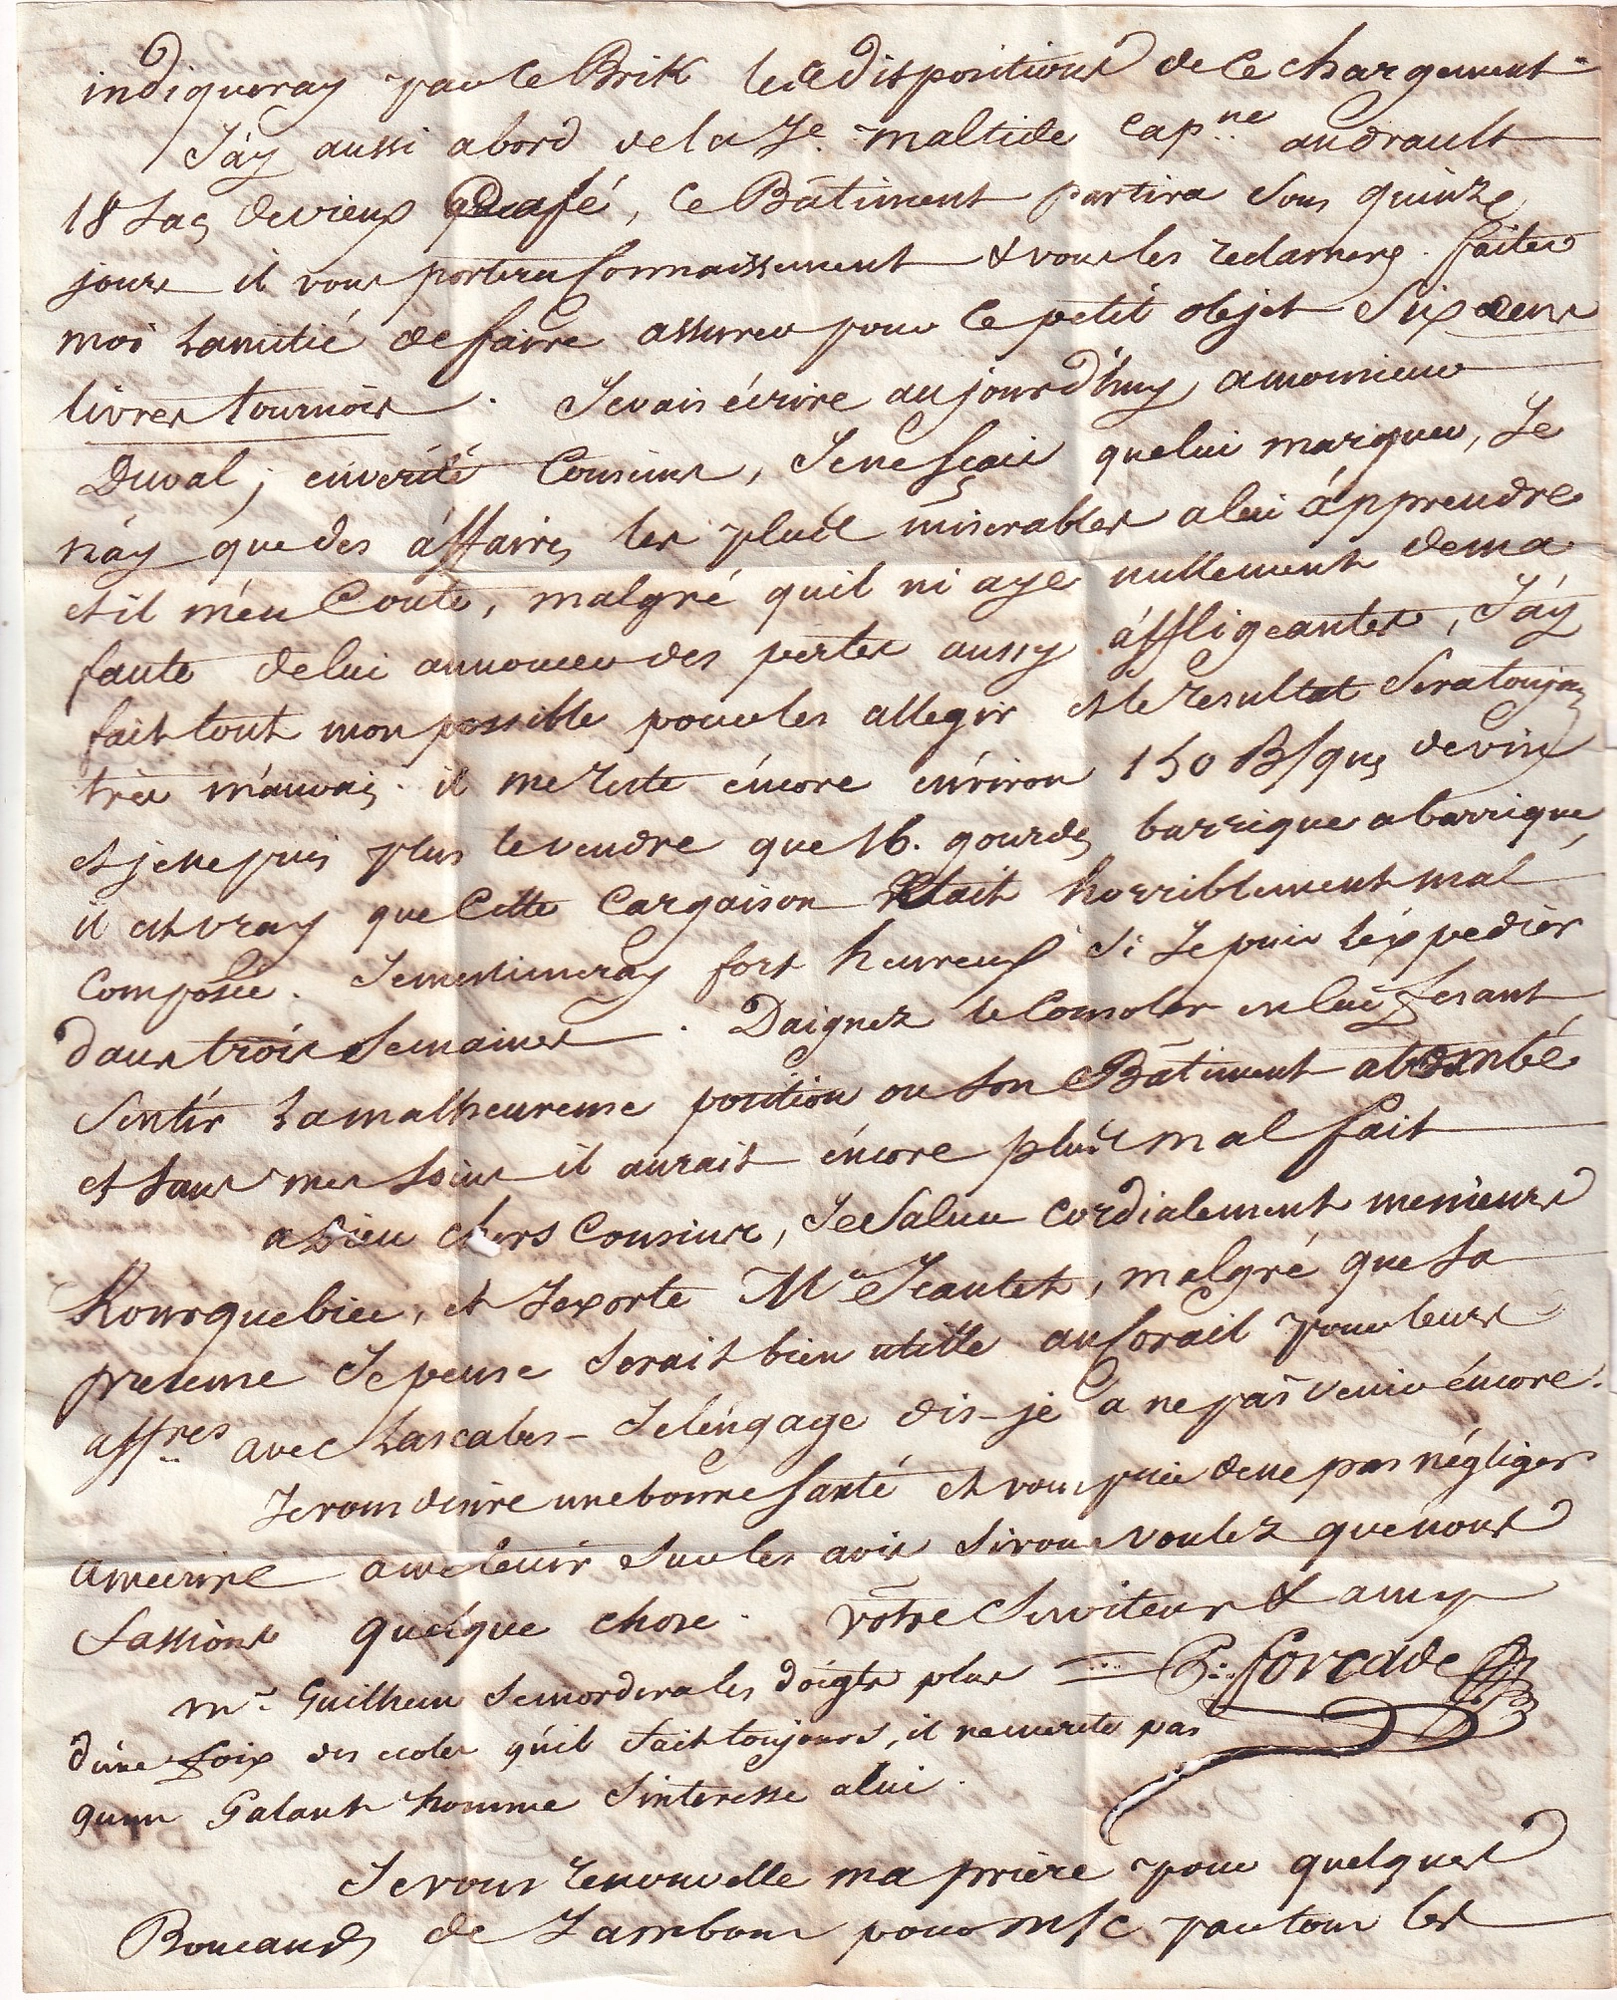 indiqueray par le Brik les dispositions de ce chargement
J'ay aussi abord de la Je. maltide capne audrault
18 sacs de vieux café, ce Bâtiment partira sous quinze
jours il vous portera connaissement & vous les reclamerez. faites
moi lamitié de faire assurer pour ce petit objet Six cens
livres tournois. Je vais écrire aujourd'huy a monsieur
Duval; en verité Cousins, Je ne sçais que lui marquer, Je
n'ay que des affaires les plus miserables a lui apprendre
et il m'en Coute, malgré quil ni aye nullement de ma
faute de lui annoncer des pertes aussy affligeantes, J'ay
fait tout mon possible pour les allegir et le resultat sera toujours
très mauvais. il me reste éncore environ 150 B/ques de vin
et je ne puis plus le vendre que 16. gourdes barrique a barrique,
il est vray que Cette Cargaison était horriblement mal
Composée. Je m'estimeray fort heureux si Je puis l'éxpedier
dans trois Semaines. Daignez le Consoler en lui fesant
Sentir la malheureuse position ou son Bâtiment a tombé
et sans mes soins il aurait éncore plus mal fait
a Dieu chers Cousins, Je Salue cordialement messieurs
Rourquebiee, et Jexorte Mr Jeantet, malgré que sa
presence Je pense serait bien utille au Corail pour leurs
affres avec Lascabes - Je l'éngage dis-je a ne pas venir éncore.
Je vous desire une bonne santé et vous prie de ne pas négliger
a mecrire a me tenir sur les avis si vous voulez que nous
fassions quelque chose. votre Serviteur & amy
P. forcade
mr. Guilhem se mordera les doigts plus
d'une foix des ecoles qu'il fait toujours, il ne merite pas
qu'un Galant homme s'interesse a lui.
Je vous renouvelle ma prière pour quelques
Boucauds de Jambons pour m/c par tous les